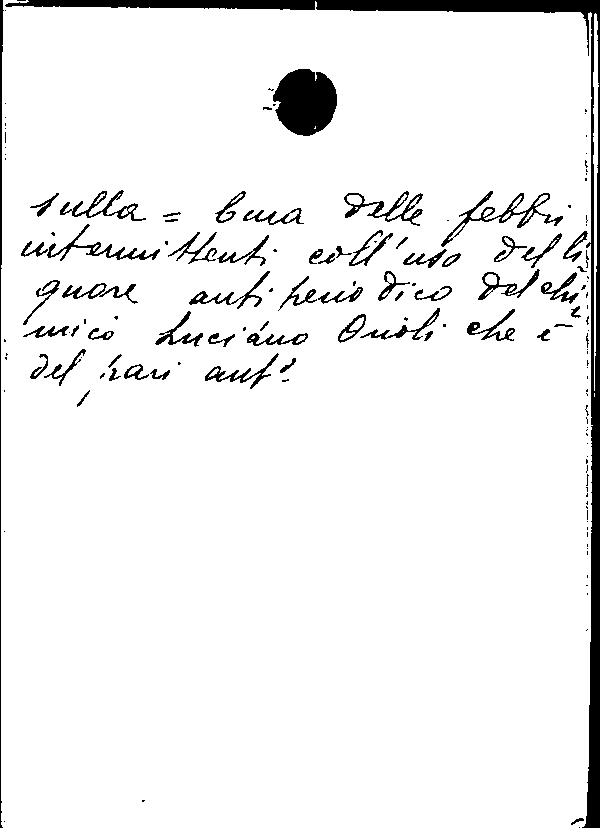 sulla = Cura delle febbri
intermittenti coll'uso del li
quore antiperiodico del chi
mico Luciano Orioli che è
del pari anto.